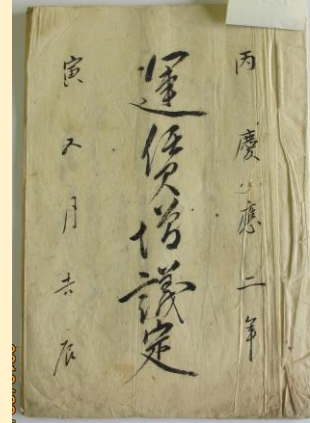 丙慶應二年
運賃増議定
寅五月吉辰